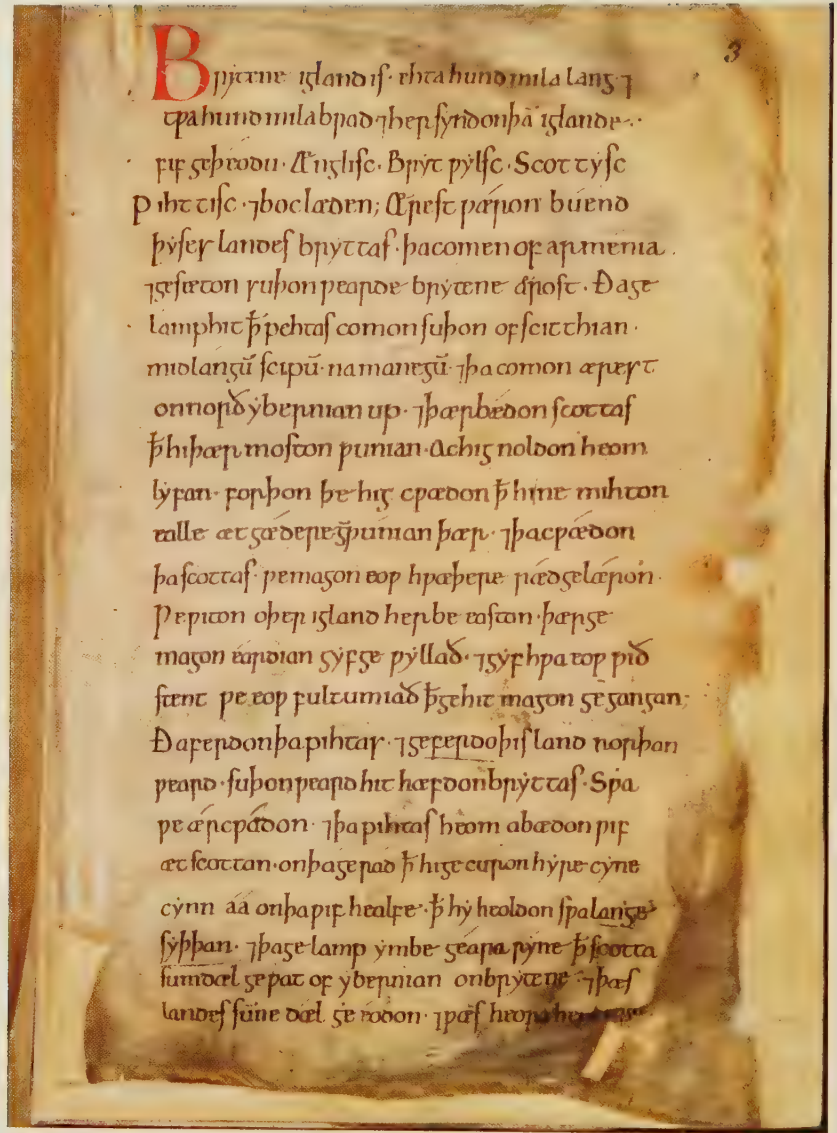 3
Brytene igland is· ehta hund mila lang ⁊
tƿa hund mila brad· ⁊ her syndon þā iglande··
fif geþeodu· Ænglisc· Bryt ƿylsc· Scottysc
Pihttisc· ⁊ boc læden; Ærest ƿæron buend
þyses landes bryttas· þa comen of armenia·
⁊ gesæton suþonƿearde brytene ærost· Ða ge
lamp hit ꝥ pehtas comon suþon of scitthian·
mid langū scipū· na manegū· ⁊ þa comon ærest
on norð ybernian up· ⁊ þær bædon scottas
ꝥ hi þær moston ƿunian· Ac hig noldon heom
lyfan· forþon þe hig cƿædon ꝥ hi ne mihton
ealle ætgædere gƿunian þær· ⁊ þa cƿædon
þa scottas· ƿe magon eoƿ hƿæþere ræd gelæron·
Ƿe ƿiton oþer igland her be eastan· þær ge
magon eardian gyf ge ƿyllað· ⁊ gyf hƿa eoƿ ƿið
stent ƿe eoƿ fultumiað ꝥ ge hit magon gegangan;
Ða ferdon þa pihtas· ⁊ geferdo þis land norþan
ƿeard· suþonƿeard hit hæfdon bryttas· Sƿa
ƿe ær cƿædon· ⁊ þa pihtas heom abædon ƿif
æt scottan· on þa gerad ꝥ hi gecuron hyre cyne
cynn aá on þa ƿif healfe· ꝥ hy heoldon sƿa lange
syþþan· ⁊ þa gelamp ymbe geara ryne ꝥ scotta
sumdæl geƿat of ybernian on brytene· ⁊ þæs
landes sumne dæl geeodon· ⁊ ƿæs heora